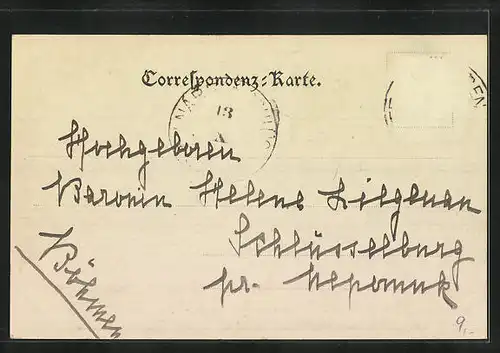 Correspondenz-Karte.
18
X
Hochgeboren
Baronin Helene Lilgenau
Schlüsselburg
pr. Nepomuk
Böhmen
9.-